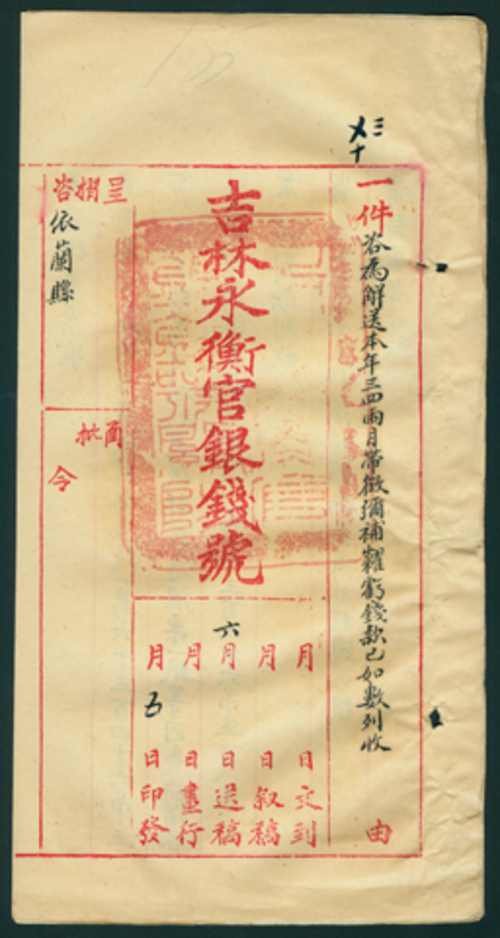 一件咨為解送本年三四兩月帶徵彌補糶虧錢款已如數列收由
吉林永衡官銀錢號
月 日文到
月 日叙稿
六月 日送稿
月 日畫行
月五日印發
呈 咨
依蘭縣
函批
令